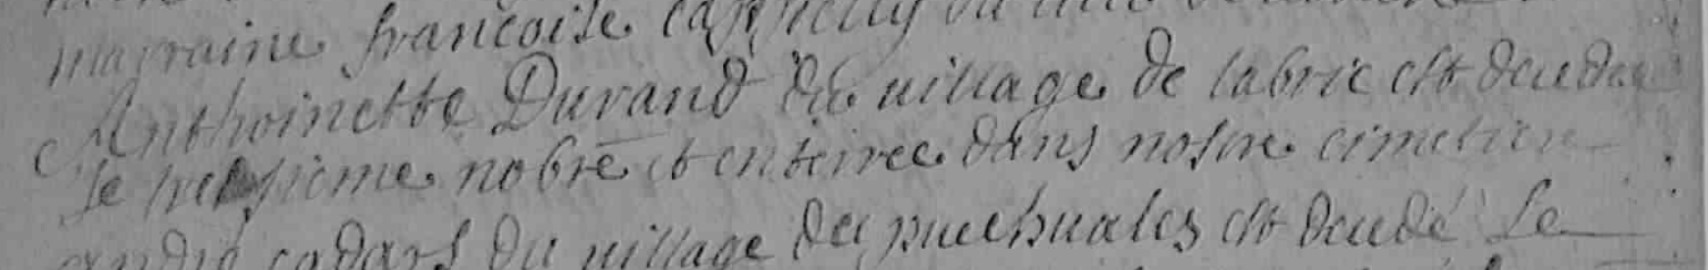 marraine francoise
Anthoinette Durand du village de labric est decedee
le treisieme nobre et enterree dans nostre cimetiere
andre cadars du village de puechuales est decede le